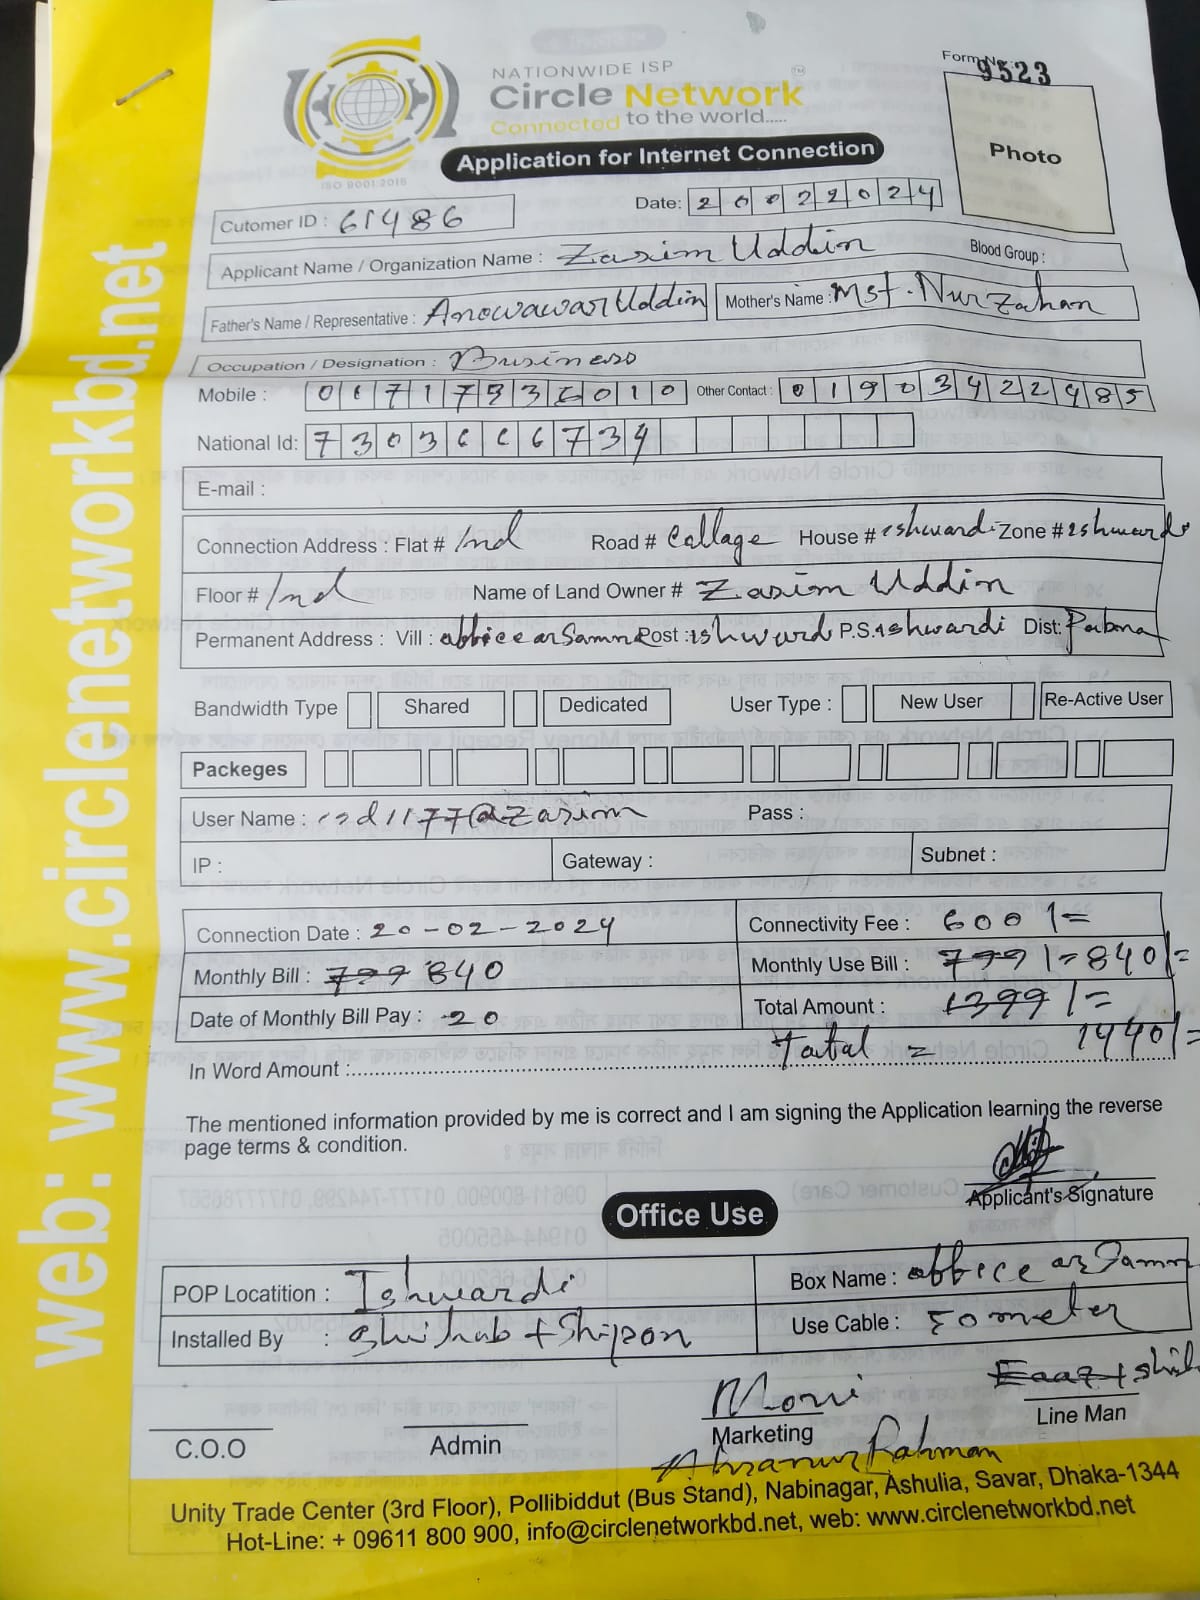 NATIONWIDE ISP
Circle Network™
Connected to the world.....
ISO 9001:2015
Form No: 9523
Photo
Application for Internet Connection
Cutomer ID : 61486
Date: 20022024
Applicant Name / Organization Name : Zasim Uddin Blood Group :
Father's Name / Representative : Anowawar Uddin Mother's Name : Mst. Nur Zahan
Occupation / Designation : Business
Mobile : 01717536010 Other Contact : 01903422485
National Id: 7303666734
E-mail :
Connection Address : Flat # Ind Road # Collage House # ishwardi Zone # ishwardi
Floor # Ind Name of Land Owner # Zasim Uddin
Permanent Address : Vill : Post : ishwardi P.S. ishwardi Dist: Pabna
Bandwidth Type Shared Dedicated User Type : New User Re-Active User
Packeges
User Name : isd1177@zasim Pass :
IP : Gateway : Subnet :
Connection Date : 20-02-2024 Connectivity Fee : 600/=
Monthly Bill : 799 840 Monthly Use Bill : 799/= 840/=
Date of Monthly Bill Pay : 20 Total Amount : 1399/=
In Word Amount : tatal = 1440/=
The mentioned information provided by me is correct and I am signing the Application learning the reverse
page terms & condition.
Applicant's Signature
Office Use
POP Locatition : Ishwardi Box Name : obbice
Installed By : Shihab + Shipon Use Cable : 50 meter
Moni
C.O.O Admin Marketing Line Man
Rahman
Unity Trade Center (3rd Floor), Pollibiddut (Bus Stand), Nabinagar, Ashulia, Savar, Dhaka-1344
Hot-Line: + 09611 800 900, info@circlenetworkbd.net, web: www.circlenetworkbd.net
web: www.circlenetworkbd.net